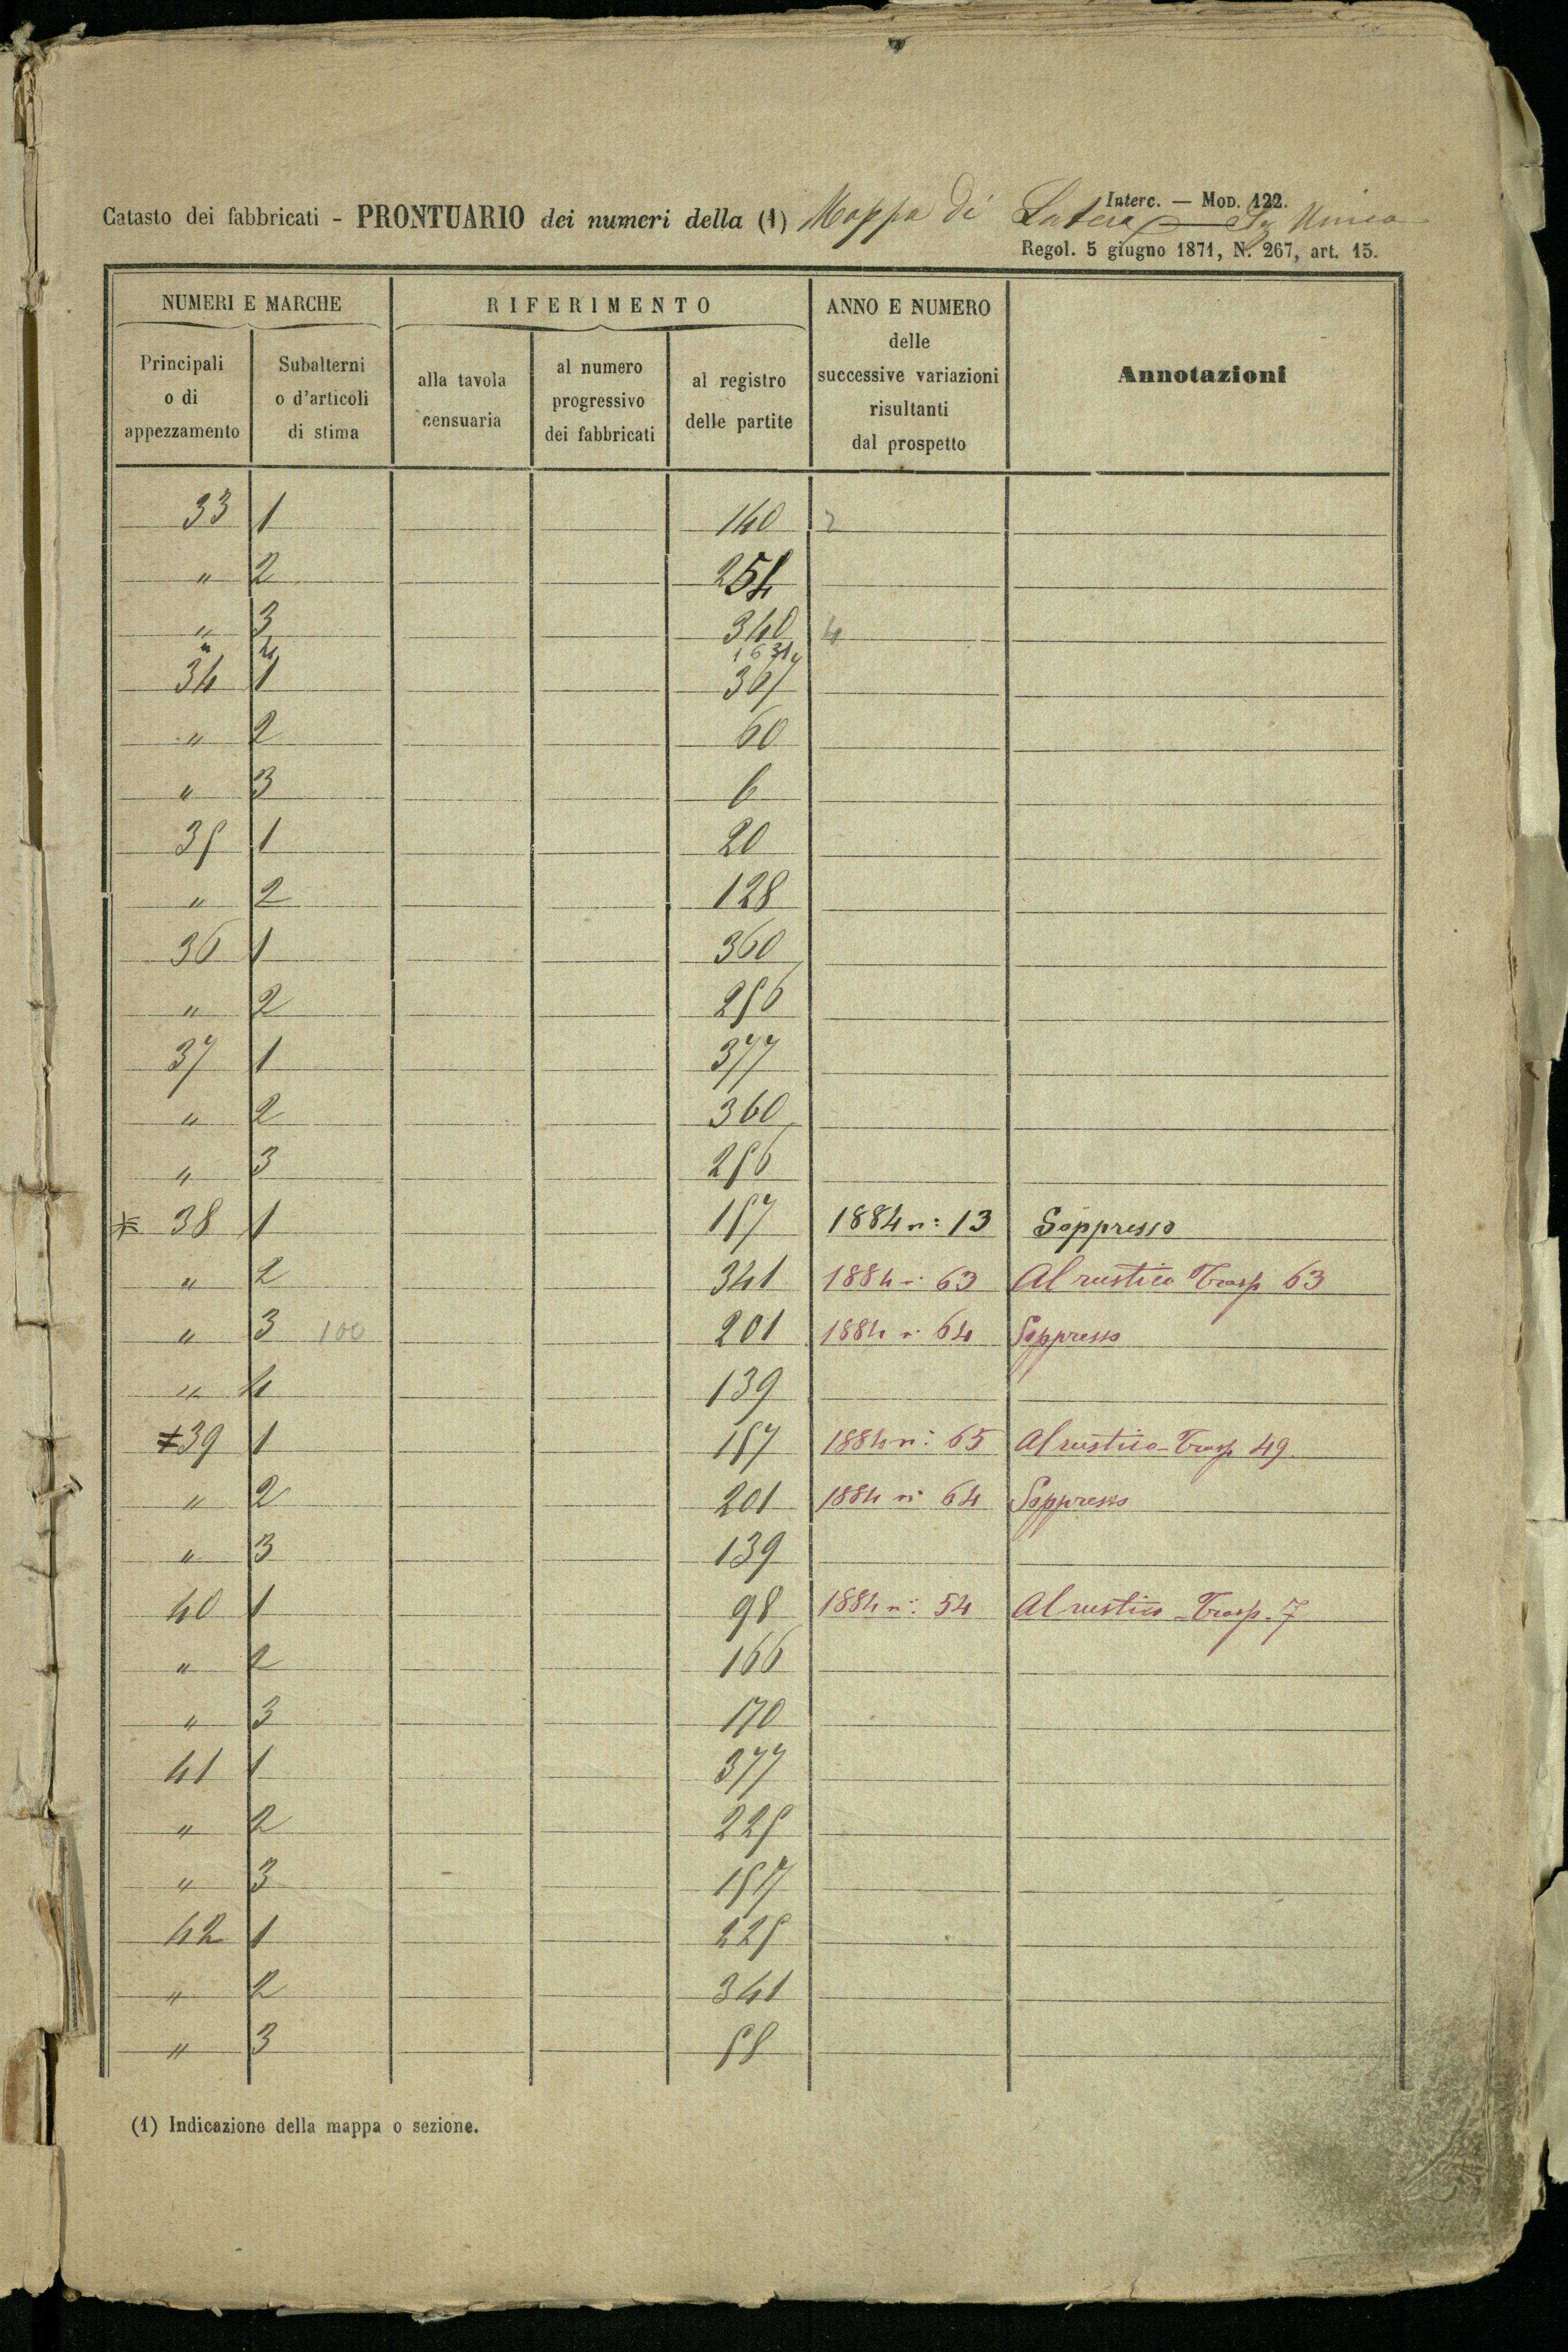 Interc. — Mod. 122.
Catasto dei fabbricati - PRONTUARIO dei numeri della (1) Mappa di Latera Sz Unica
Regol. 5 giugno 1871, N. 267, art. 15.
NUMERI E MARCHE RIFERIMENTO ANNO E NUMERO delle successive variazioni risultanti dal prospetto Annotazioni
Principali o di appezzamento Subalterni o d'articoli di stima alla tavola censuaria al numero progressivo dei fabbricati al registro delle partite
33 1 140 2
" 2 254
" 3 340 4
" 4 1631
34 1 367
" 2 60
" 3 6
35 1 20
" 2 128
36 1 360
" 2 256
37 1 377
" 2 360
" 3 256
* 38 1 157 1884 n: 13 Soppresso
" 2 341 1884 n: 63 Al rustico Trasp 63
" 3 100 201 1884 n: 64 Soppresso
" 4 139
≠ 39 1 157 1884 n: 65 Al rustico - Trasp 49.
" 2 201 1884 n: 64 Soppresso
" 3 139
40 1 98 1884 n: 54 Al rustico - Trasp. 7
" 2 166
" 3 170
41 1 377
" 2 225
" 3 157
42 1 225
" 2 341
" 3 58
(1) Indicazione della mappa o sezione.